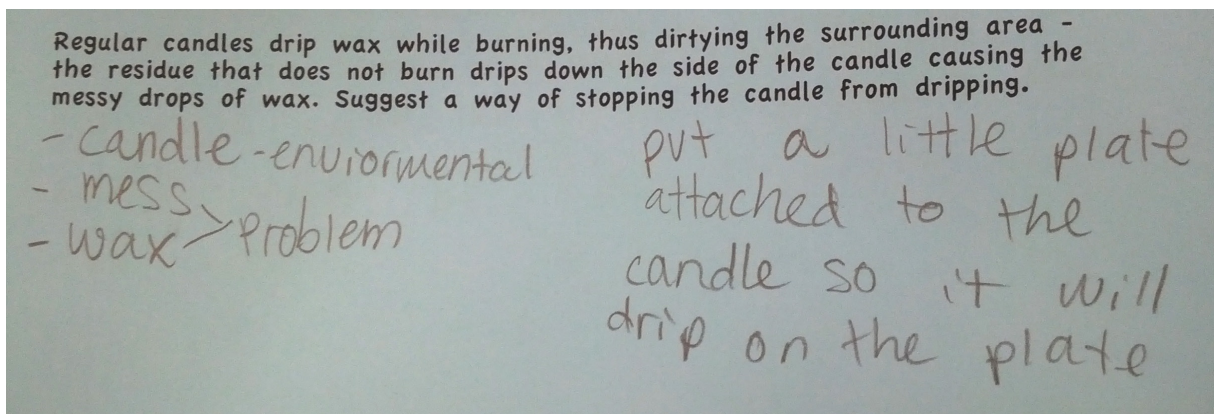 Regular candles drip wax while burning, thus dirtying the surrounding area -
the residue that does not burn drips down the side of the candle causing the
messy drops of wax. Suggest a way of stopping the candle from dripping.
- candle - enviormental
- mess
- wax > Problem
put a little plate
attached to the
candle so it will
drip on the plate